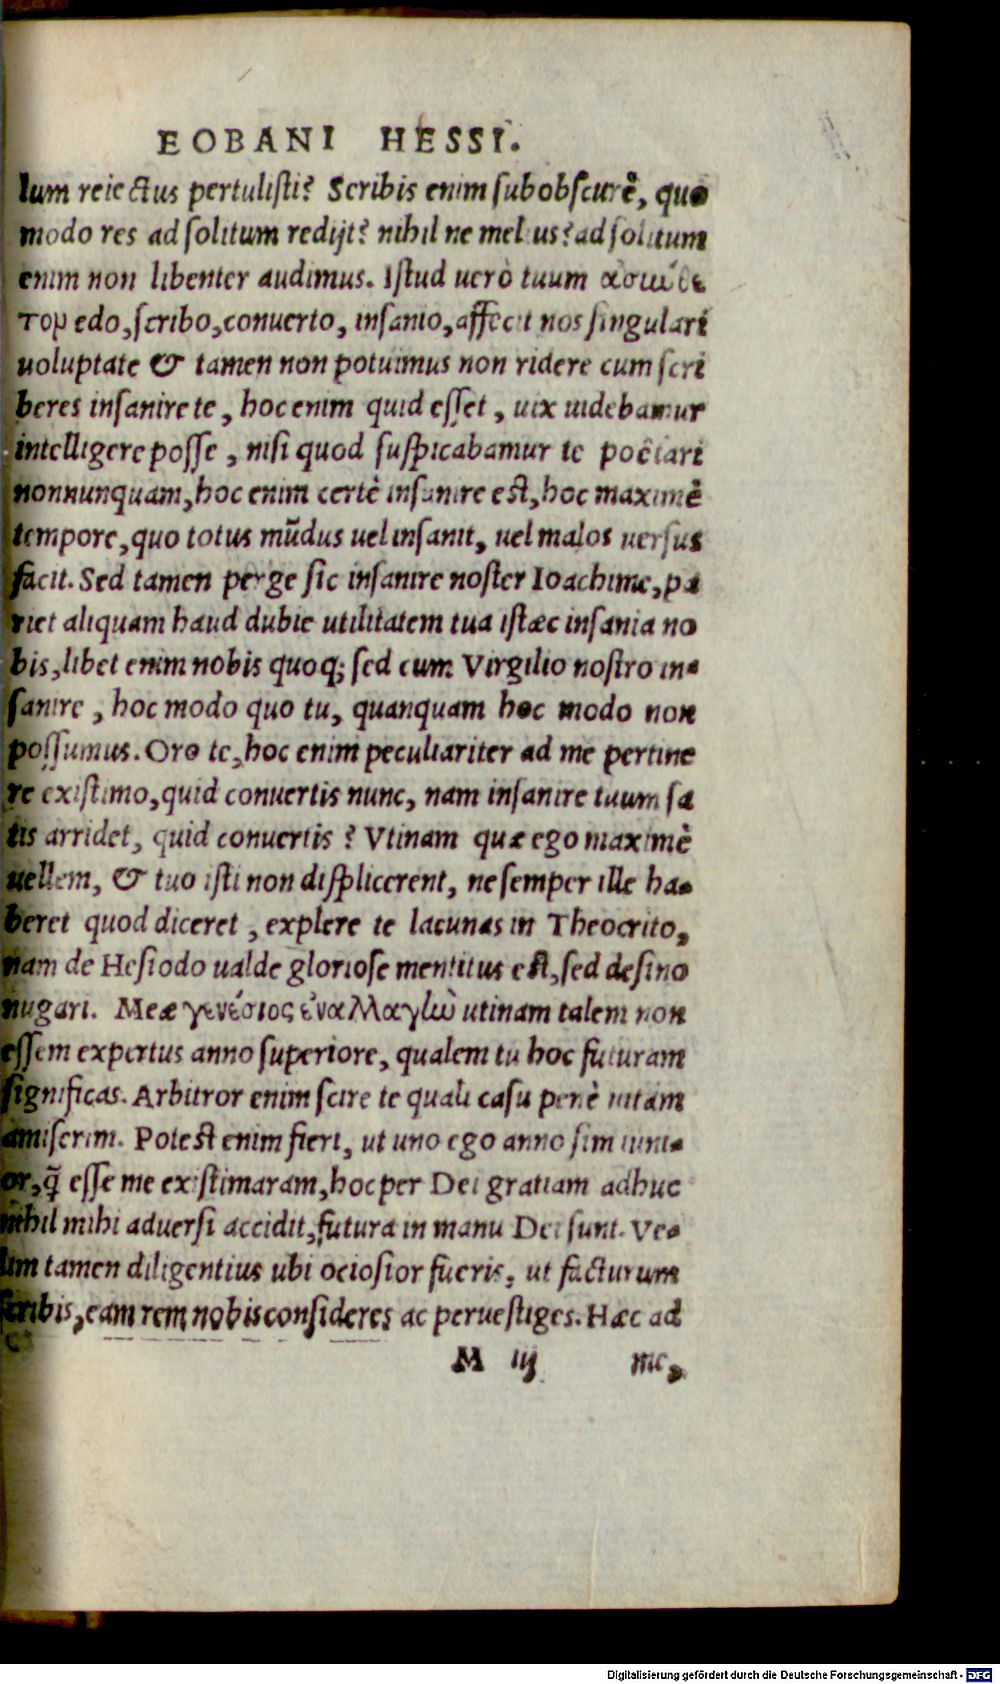 EOBANI HESSI.
lum reiectus pertulisti? Scribis enim subobscurè, quo
modo res ad solitum redijt? nihil ne melius? ad solitum
enim non libenter audimus. Istud uerò tuum
edo, scribo, conuerto, insanio, affecit nos singulari
uoluptate & tamen non potuimus non ridere cum scri
beres insanire te, hoc enim quid esset, uix uidebamur
intelligere posse, nisi quod suspicabamur te poëtari
nonnunquam, hoc enim certè insanire est, hoc maximè
tempore, quo totus mũdus uel insanit, uel malos uersus
facit. Sed tamen perge sic insanire noster Ioachime, pa
riet aliquam haud dubie utilitatem tua istæc insania no
bis, libet enim nobis quoq; sed cum Virgilio nostro in-
sanire, hoc modo quo tu, quanquam hoc modo non
possumus. Oro te, hoc enim peculiariter ad me pertine
re existimo, quid conuertis nunc, nam insanire tuum sa
tis arridet, quid conuertis? Vtinam quæ ego maximè
uellem, & tuo isti non displicerent, ne semper ille ha-
beret quod diceret, explere te lacunas in Theocrito,
nam de Hesiodo ualde gloriose mentitus est, sed desino
nugari. Meæ γενέσιος utinam talem non
essem expertus anno superiore, qualem tu hoc futuram
significas. Arbitror enim scire te quali casu penè uitam
amiserim. Potest enim fieri, ut uno ego anno sim iuni-
or, q̃ esse me existimaram, hoc per Dei gratiam adhuc
nihil mihi aduersi accidit, futura in manu Dei sunt. Ve-
lim tamen diligentius ubi ociosior fueris, ut facturum
scribis, eam rem nobis consideres ac peruestiges. Hæc ad
M iij me,
Digitalisierung gefördert durch die Deutsche Forschungsgemeinschaft - DFG